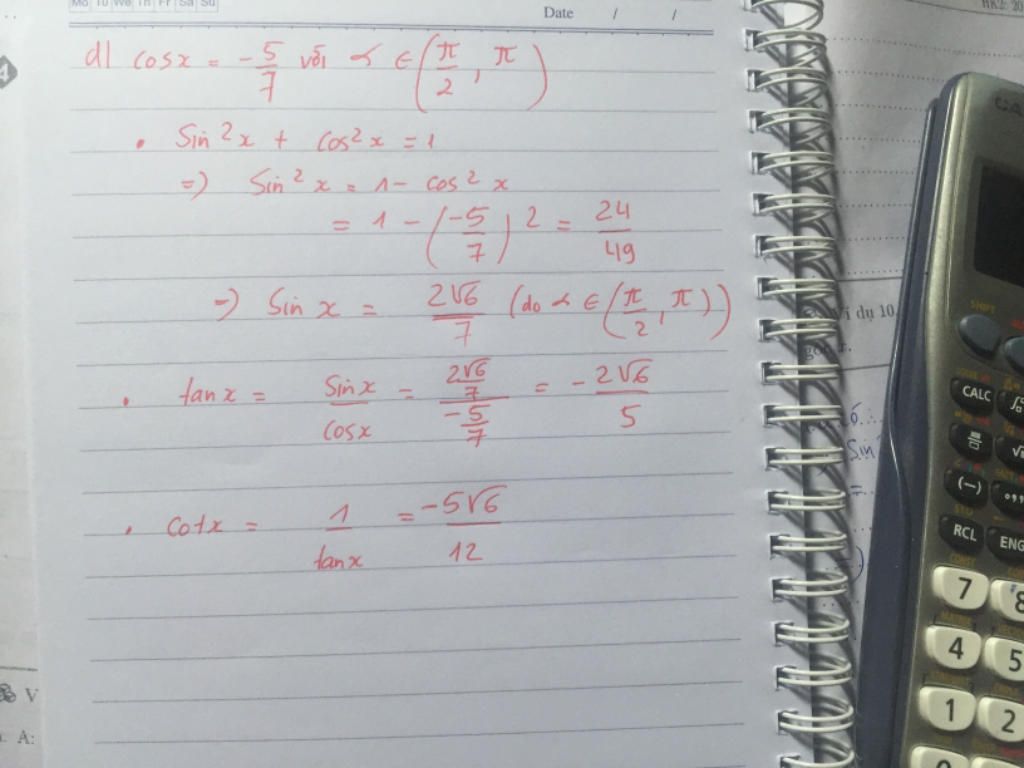 Mo Tu We Th Fr Sa Su
Date / /
HK2: 20
4
d) cosx = -5/7 với α ∈ (π/2, π)
• Sin²x + cos²x = 1
=) Sin²x = 1 - cos²x
= 1 - (-5/7)² = 24/49
=) Sin x = 2√6/7 (do α ∈ (π/2, π))
• tanx = Sinx/cosx = (2√6/7)/(-5/7) = -2√6/5
• Cotx = 1/tanx = -5√6/12
í dụ 10.
Sin
V
A:
SHIFT
CALC
(−)
STO
RCL
ENG
7 8
4 5
1 2
0